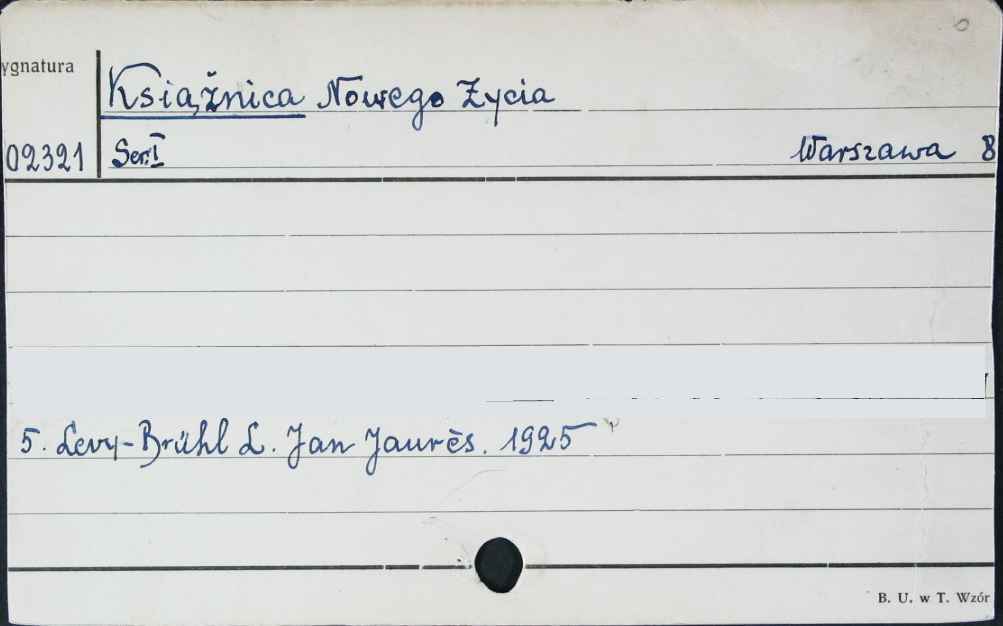 ygnatura
Książnica Nowego Życia
02321 Ser. I Warszawa 8
5. Levy-Brühl L. Jan Jaurès. 1925
B. U. w T. Wzór